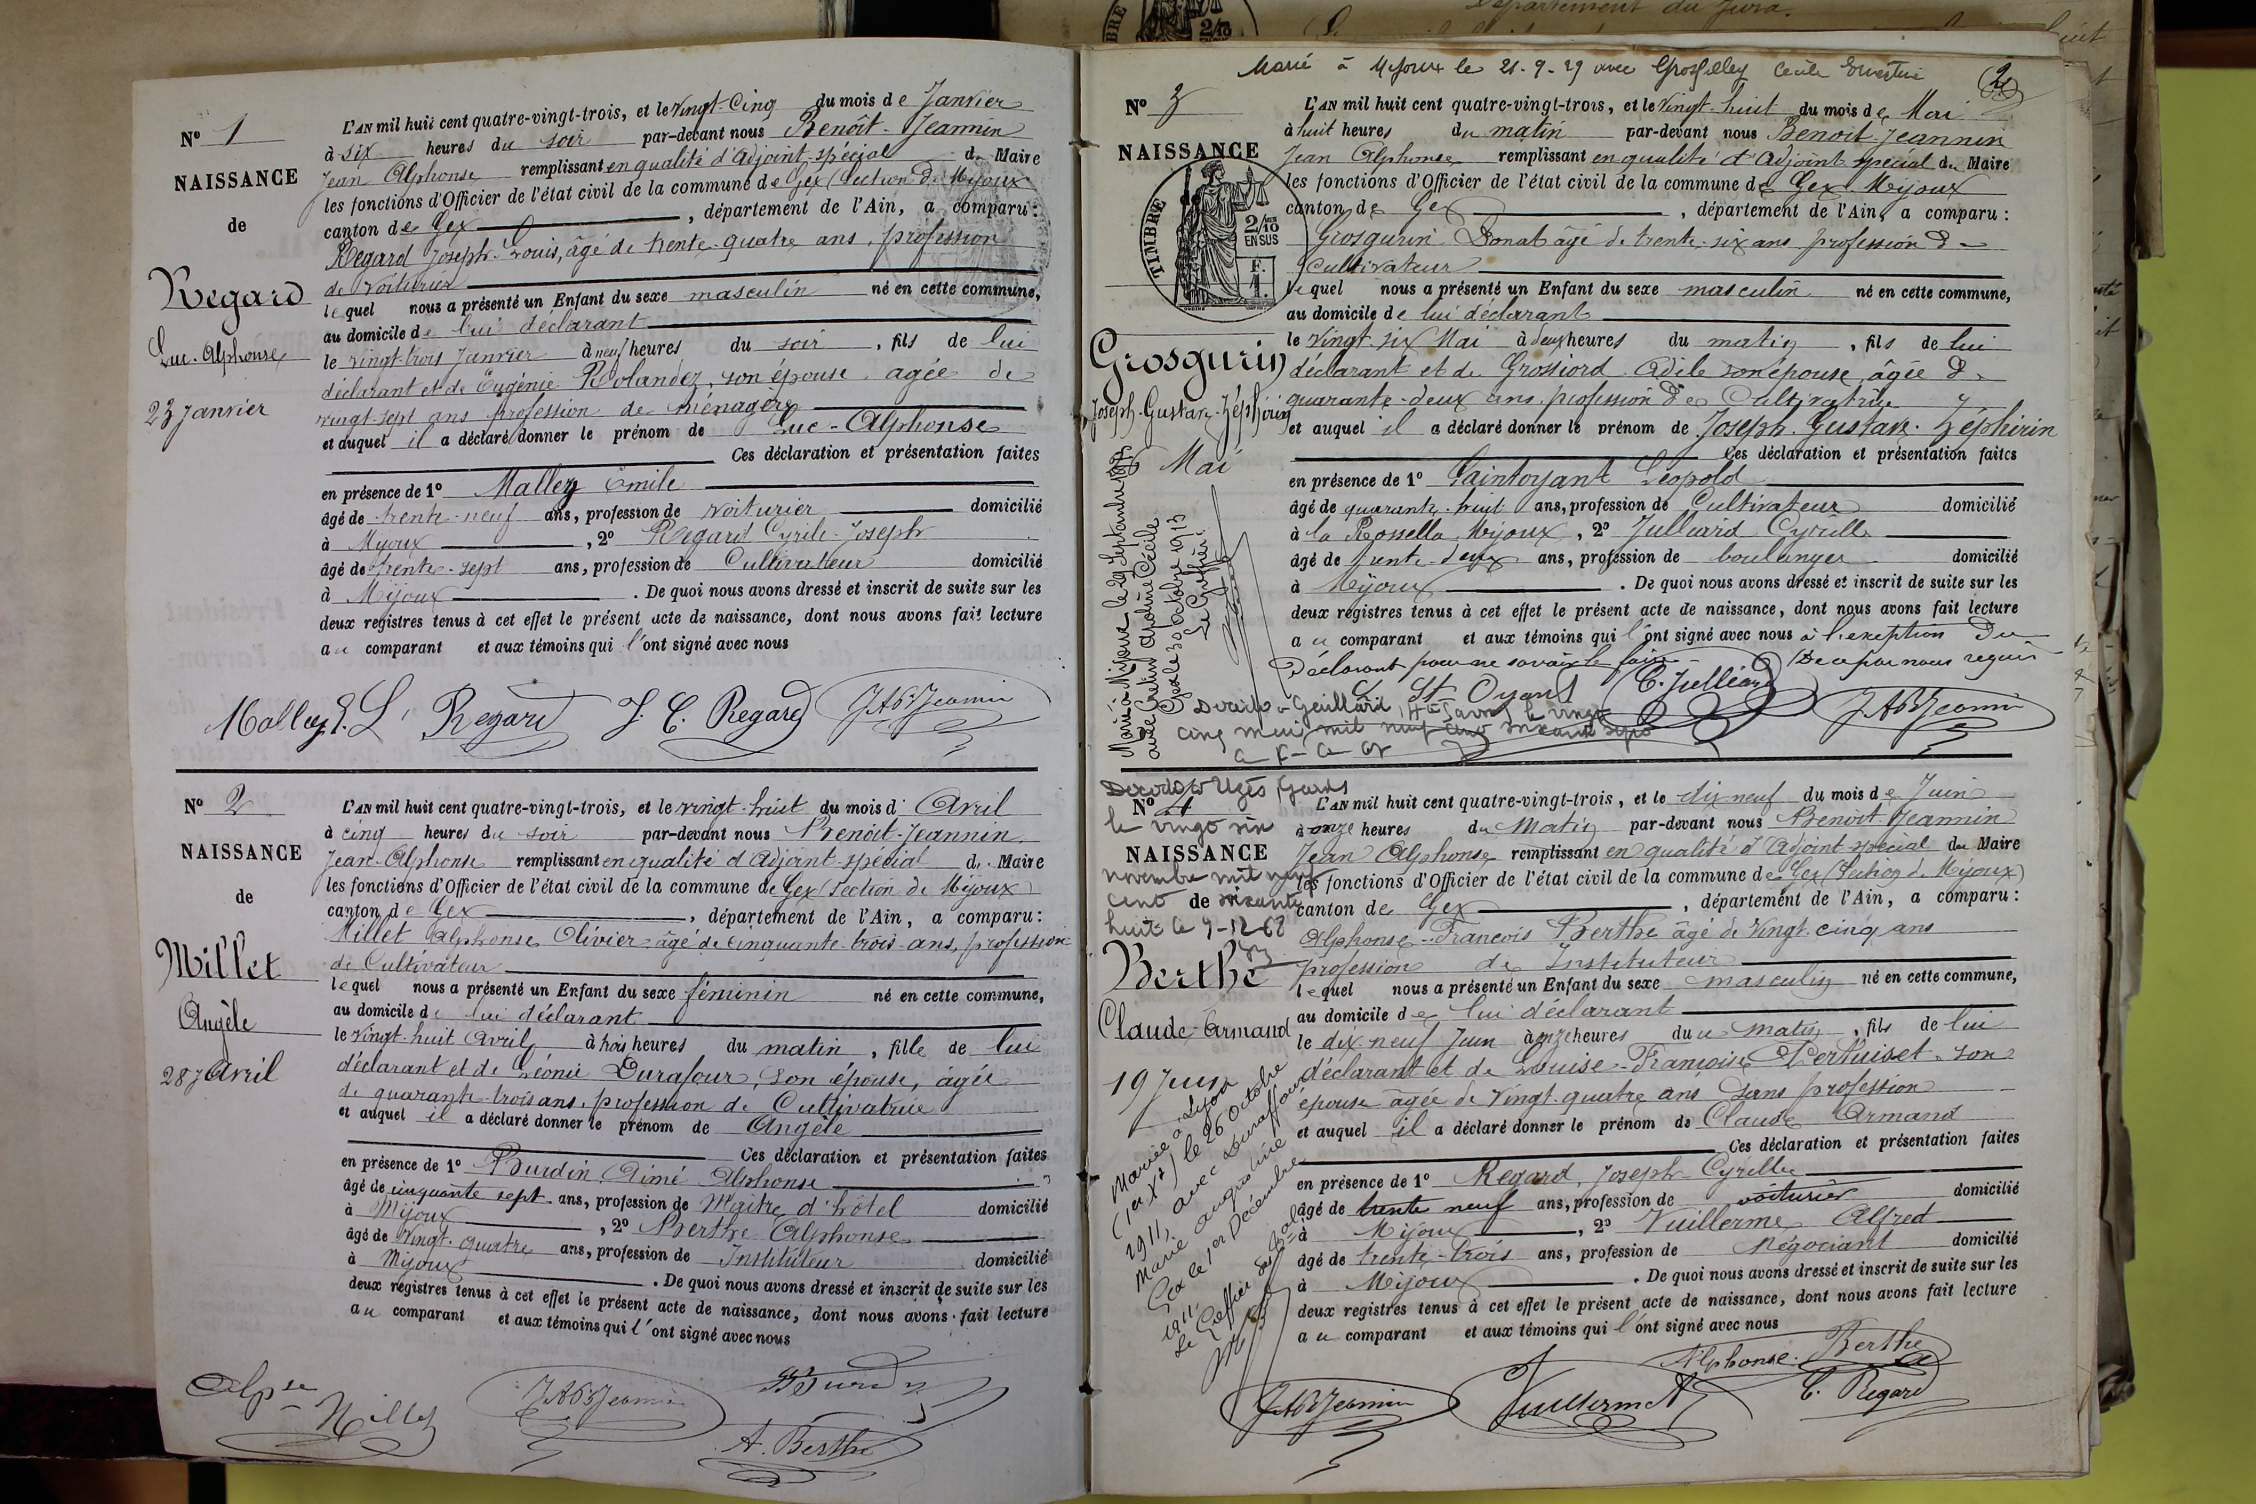 Département du Jura.
N° 1
NAISSANCE
de
Regard
Luc-Alphonse
23 Janvier
L'AN mil huit cent quatre-vingt-trois, et le Vingt-Cinq du mois de Janvier
à six heures du soir par-devant nous Benoît-Jeannin
Jean Alphonse remplissant en qualité d'Adjoint spécial du Maire
les fonctions d'Officier de l'état civil de la commune de Gex (Section de Mijoux
canton de Gex, département de l'Ain, a comparu:
Regard Joseph-Louis, âgé de trente-quatre ans, profession
de voiturier
lequel nous a présenté un Enfant du sexe masculin né en cette commune,
au domicile de lui déclarant
le vingt-trois Janvier à neuf heures du soir, fils de lui
déclarant et de Eugénie Rolandez, son épouse agée de
vingt-sept ans profession de ménagère
et auquel il a déclaré donner le prénom de Luc-Alphonse
Ces déclaration et présentation faites
en présence de 1° Malley Emile
âgé de trente-neuf ans, profession de voiturier domicilié
à Mijoux, 2° Regard Cyrile-Joseph
âgé de trente-sept ans, profession de Cultivateur domicilié
à Mijoux. De quoi nous avons dressé et inscrit de suite sur les
deux registres tenus à cet effet le présent acte de naissance, dont nous avons fait lecture
au comparant et aux témoins qui l'ont signé avec nous
Malley E. L. Regard J. C. Regard JAB Jeannin
N° 2
NAISSANCE
de
Millet
Angèle
28 Avril
L'AN mil huit cent quatre-vingt-trois, et le vingt-huit du mois d'Avril
à cinq heures du soir par-devant nous Benoît-Jeannin
Jean-Alphonse remplissant en qualité d'Adjoint spécial du Maire
les fonctions d'Officier de l'état civil de la commune de Gex (Section de Mijoux)
canton de Gex, département de l'Ain, a comparu:
Millet Alphonse Olivier âgé de cinquante-trois ans, profession
de Cultivateur
lequel nous a présenté un Enfant du sexe féminin né en cette commune,
au domicile de lui déclarant
le Vingt-huit Avril à trois heures du matin, fille de lui
déclarant et de Léonie Durafour, son épouse, âgée
de quarante-trois ans, profession de Cultivatrice
et auquel il a déclaré donner le prénom de Angèle
Ces déclaration et présentation faites
en présence de 1° Burdin Aimé Alphonse
âgé de cinquante sept ans, profession de Maître d'hôtel domicilié
à Mijoux, 2° Berthe Alphonse
âgé de vingt-quatre ans, profession de Instituteur domicilié
à Mijoux. De quoi nous avons dressé et inscrit de suite sur les
deux registres tenus à cet effet le présent acte de naissance, dont nous avons fait lecture
au comparant et aux témoins qui l'ont signé avec nous
Alpse Millet JAB Jeannin Burdin
A. Berthe
Marié à Mijoux le 21-9-29 avec Grosfilley Cécile Ernestine
2
N° 3
NAISSANCE
de
TIMBRE
2/10 EN SUS
F. 1.
Grosgurin
Joseph-Gustave-Zéphirin
26 Mai
Marié à Mijoux le 29 Septembre 1913
avec Cretin Apoline Cécile
Gex le 30 Octobre 1913
Le Greffier:
L'AN mil huit cent quatre-vingt-trois, et le Vingt-huit du mois de Mai
à huit heures du matin par-devant nous Benoit-Jeannin
Jean Alphonse remplissant en qualité d'Adjoint spécial du Maire
les fonctions d'Officier de l'état civil de la commune de Gex-Mijoux
canton de Gex, département de l'Ain, a comparu:
Grosgurin Donat âgé de trente-six ans profession de
Cultivateur
lequel nous a présenté un Enfant du sexe masculin né en cette commune,
au domicile de lui déclarant
le vingt-six Mai à deux heures du matin, fils de lui
déclarant et de Grossiord Adèle son épouse, âgée de
quarante-deux ans, profession de Cultivatrice
et auquel il a déclaré donner le prénom de Joseph-Gustave-Zéphirin
Ces déclaration et présentation faites
en présence de 1° Saintoyant Léopold
âgé de quarante-huit ans, profession de Cultivateur domicilié
à la Rossella Mijoux, 2° Julliard Cyrille
âgé de trente-deux ans, profession de boulanger domicilié
à Mijoux. De quoi nous avons dressé et inscrit de suite sur les
deux registres tenus à cet effet le présent acte de naissance, dont nous avons fait lecture
au comparant et aux témoins qui l'ont signé avec nous à l'exception du
Déclarant pour ne savoir le faire De ce par nous requis
St Oyant C. Julliard JAB Jeannin
Décédé à Gaillard, Hte Savoie le vingt
cinq mai mil neuf cent soixante sept
Décédé à Uzès (Gard)
le vingt six
novembre mil neuf
cent soixante
huit le 9-12-68
N° 4
NAISSANCE
de
Berthe
Claude-Armand
19 Juin
Marié à Lyon
le 26 Octobre
1911, avec Duraffour
Marie Augustine
Gex le 1er Décembre
1911,
Le Greffier
L'AN mil huit cent quatre-vingt-trois, et le dix neuf du mois de Juin
à onze heures du Matin par-devant nous Benoit Jeannin
Jean Alphonse remplissant en qualité d'Adjoint spécial du Maire
les fonctions d'Officier de l'état civil de la commune de Gex (Section de Mijoux)
canton de Gex, département de l'Ain, a comparu:
Alphonse-François Berthe âgé de Vingt-cinq ans
profession de Instituteur
lequel nous a présenté un Enfant du sexe masculin né en cette commune,
au domicile de lui déclarant
le dix-neuf Juin à onze heures du matin, fils de lui
déclarant et de Louise-Françoise Pertuiset son
épouse âgée de Vingt-quatre ans Sans profession
et auquel il a déclaré donner le prénom de Claude Armand
Ces déclaration et présentation faites
en présence de 1° Regard, Joseph-Cyrille
âgé de trente neuf ans, profession de voiturier domicilié
à Mijoux, 2° Vuillerme Alfred
âgé de trente-trois ans, profession de Négociant domicilié
à Mijoux. De quoi nous avons dressé et inscrit de suite sur les
deux registres tenus à cet effet le présent acte de naissance, dont nous avons fait lecture
au comparant et aux témoins qui l'ont signé avec nous
Alphonse Berthe
JAB Jeannin Vuillerme A C. Regard